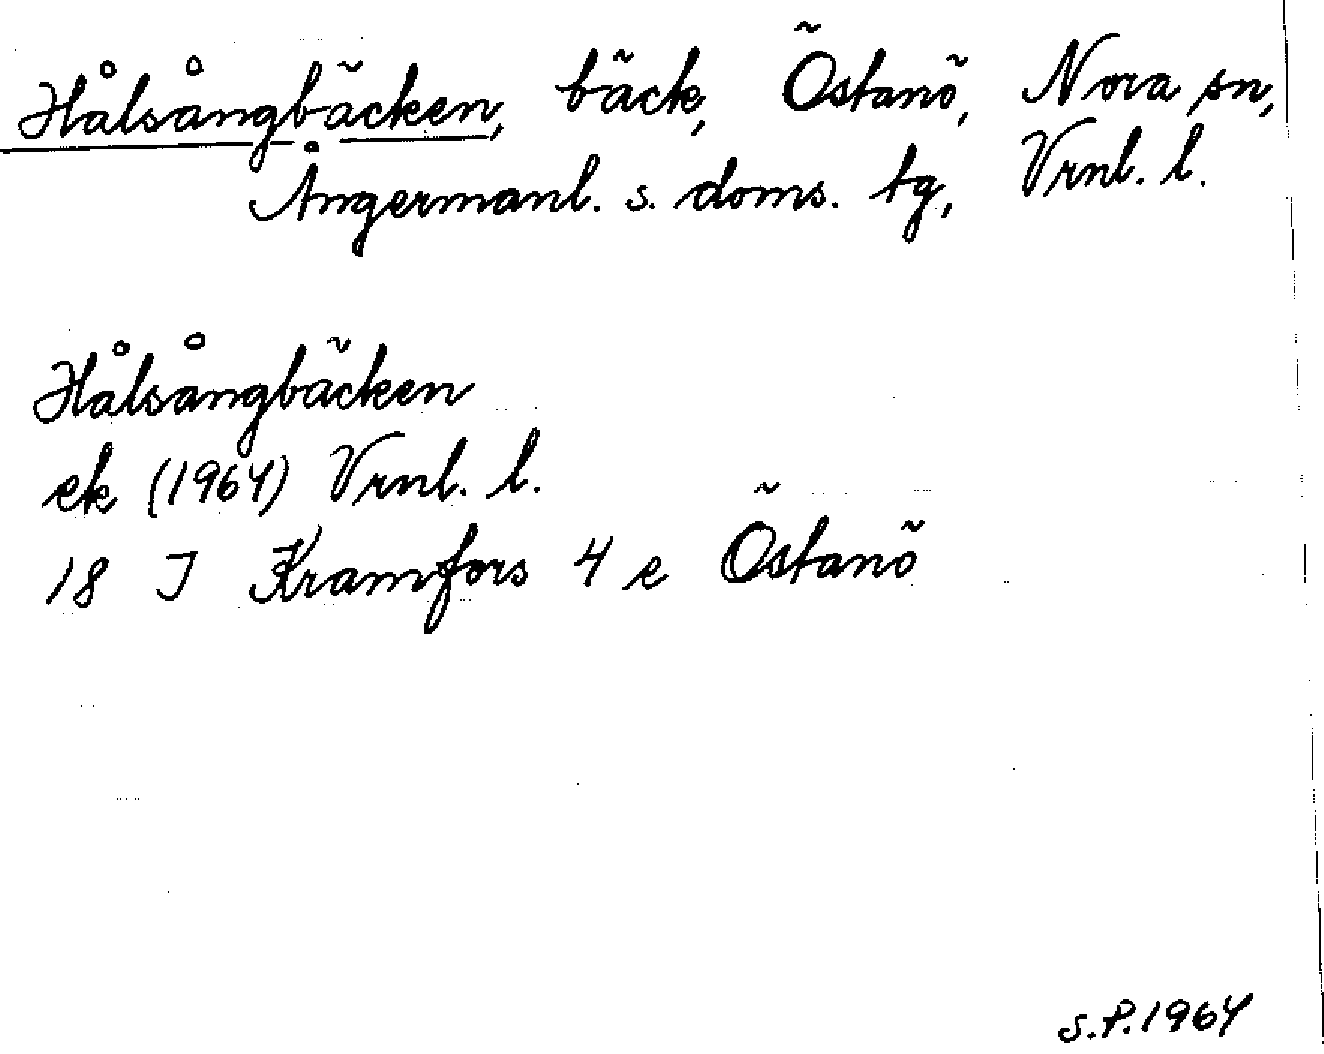 Hålsångbäcken, bäck, Östanö, Nora sn,
Ångermanl. s. doms. tg, Vrnl. l.
Hålsångbäcken
ek (1964) Vrnl. l.
18 J Kramfors 4 e Östanö
S.P. 1964